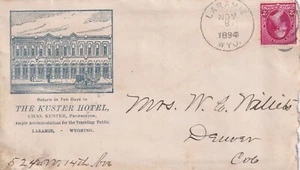 LARAMIE
NOV
8
1894
WYO.
Return in Ten Days to
THE KUSTER HOTEL,
CHAS. KUSTER, Proprietor,
Ample Accommodations for the Traveling Public.
LARAMIE, - WYOMING.
Mrs. W. L. Willis
Denver
Colo
524 W. 14th Ave